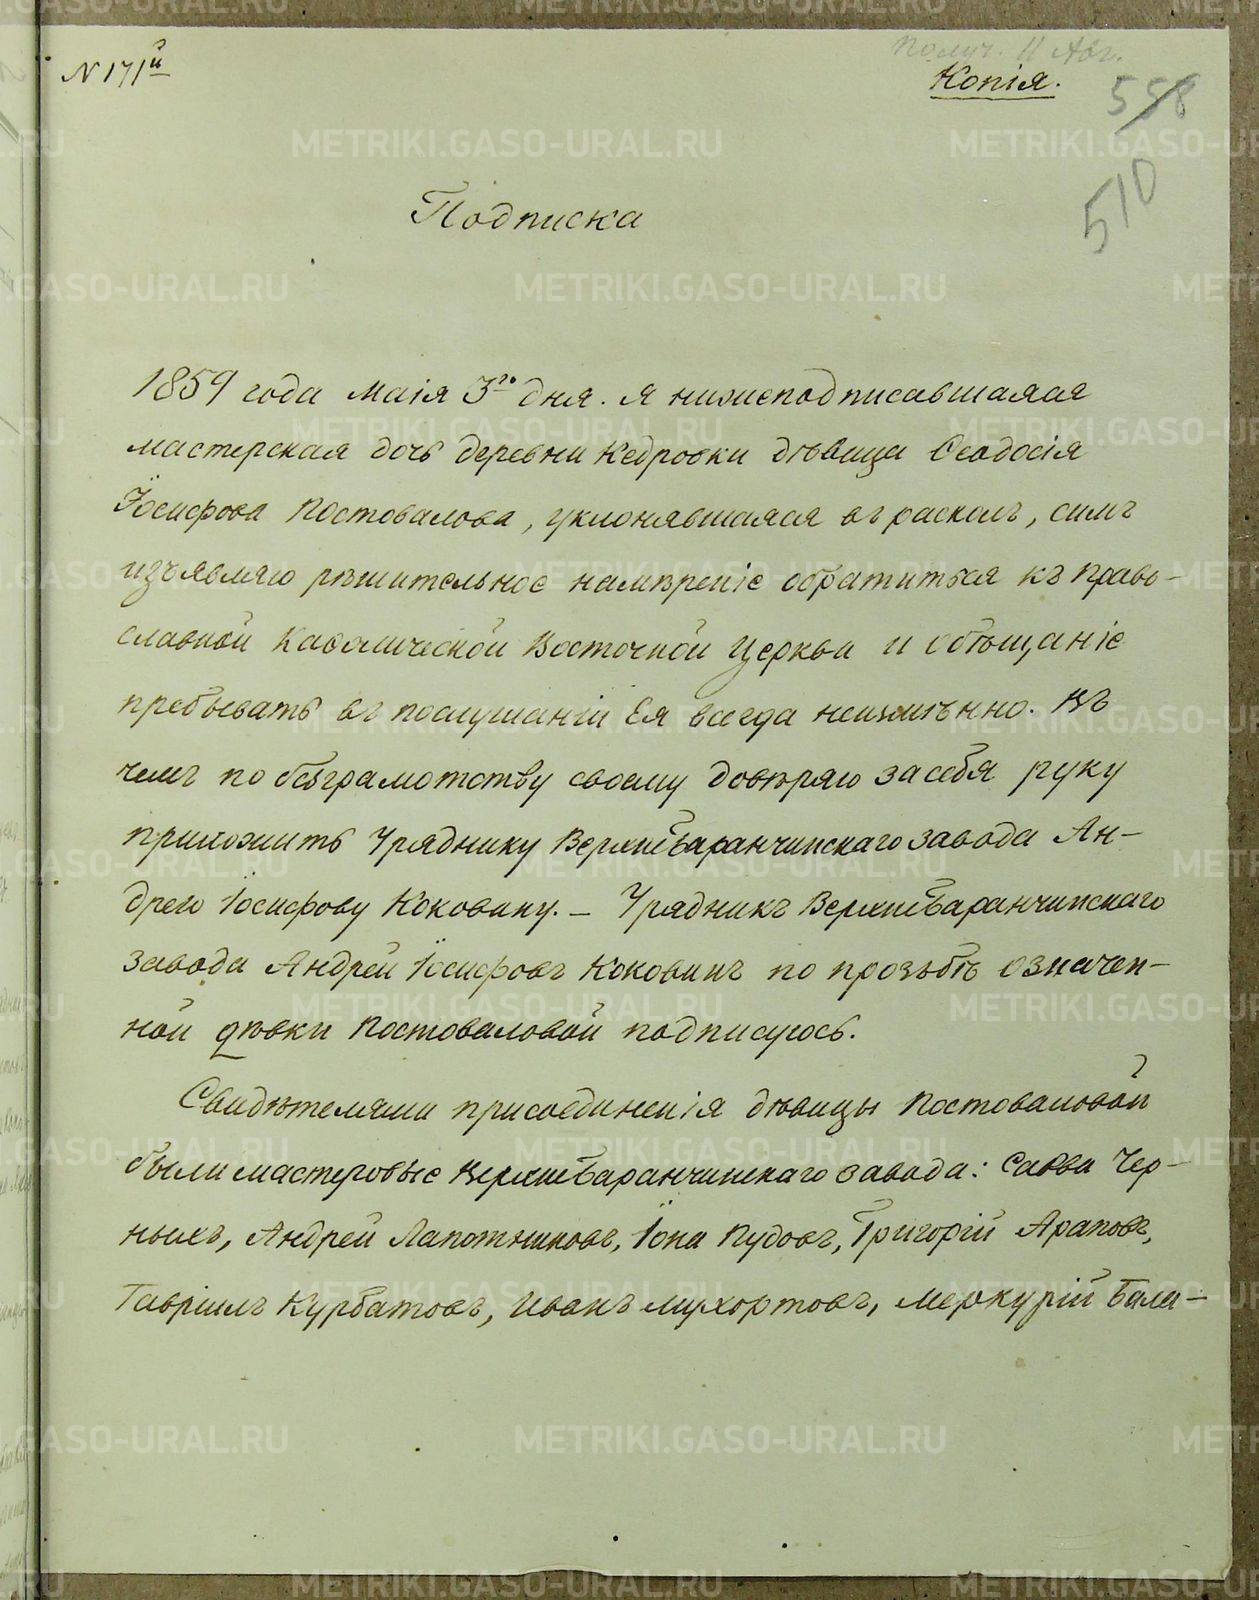 Получ. 11 Авг.
N 171й
Копія.
558
510
Подписка
1859 года Маія 3го дня. Я нижеподписавшаяся
мастерская дочь деревни Кедровки дѣвица Ѳеодосія
Іосифова Постовалова, уклонявшаяся въ расколъ, симъ
изъявляю рѣшительное намѣреніе обратиться къ Право-
славной Каѳолической Восточной Церкви и обѣщаніе
пребывать въ послушаніи Ея всегда неизмѣнно. Въ
чемъ по безграмотству своему довѣряю за себя руку
приложить Уряднику Верхнебаранчинскаго завода Ан-
дрею Іосифову Коковину. – Урядникъ Верхнебаранчинскаго
завода Андрей Іосифовъ Коковинъ по прозьбѣ означен-
ной дѣвки Постоваловой подписуюсь.
Свидѣтелями присоединенія дѣвицы Постоваловой
были мастеровые Верхнебаранчинскаго завода: Савва Чер-
ныхъ, Андрей Лапотниковъ, Іона Пудовъ, Григорій Араповъ,
Гавріилъ Курбатовъ, Иванъ Мухортовъ, Меркурій Бала-
METRIKI.GASO-URAL.RU